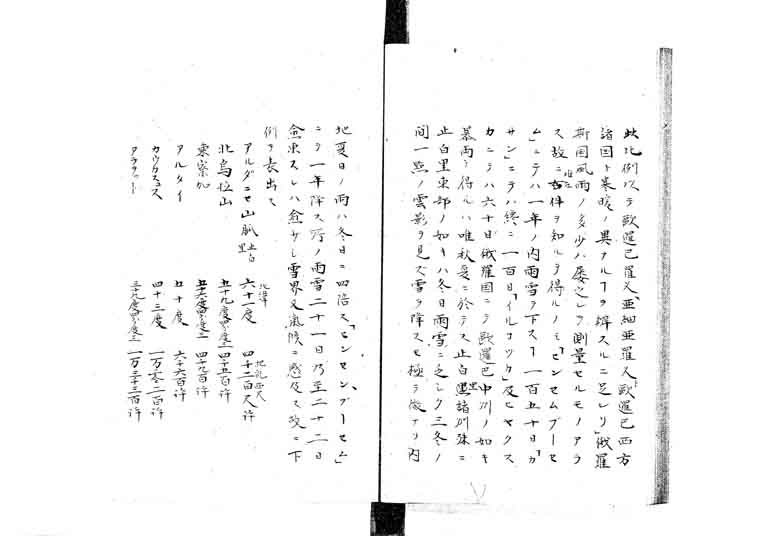 此比例以テ歐邏巴羅又「亜細亜羅又歐邏巴西方
諸国ト寒暖ノ異ナルヿヲ辨スルニ足レリ」俄羅
斯国風雨ノ多少ハ屡之レヲ測量セルモノアラ
ス故ニ左件ヲ知ルヲ得ルノミ「ピンセムブーセ
ム」ニテハ一年ノ内雨雪ヲ下スヿ一百五十日「カ
サン」ニテハ終ニ一百日「イルコツカ」及ヒヤクス
カニテハ六十日俄羅国ニテ歐邏巴中州ノ如キ
暴雨ヲ得ルハ唯秋夏ニ於テス止白里諸州殊ニ
止白里東部ノ如キハ冬日雨雪ニ乏シク三冬ノ
間一点ノ雲影ヲ見ズ雪ヲ降スモ極テ微ナリ内
地夏日ノ雨ハ冬日ニ四倍ス「ピンセンブーセム」
ニテ一年降ス所ノ雨雪二十一日乃至二十二日
愈東スレハ愈少シ雪界又気候ニ感及ス故ニ下
例ヲ表出ス
アルダニセ山脈 止白里 北緯 六十一度 四千二百尺許 地理西尺
北烏拉山 五十九度 四千五百許
東察加 五十六度 四千九百許
アルタイ 五十度 六千六百許
カウカスユス 四十三度 一万零二百許
アララット 三十九度 一万三千三百許